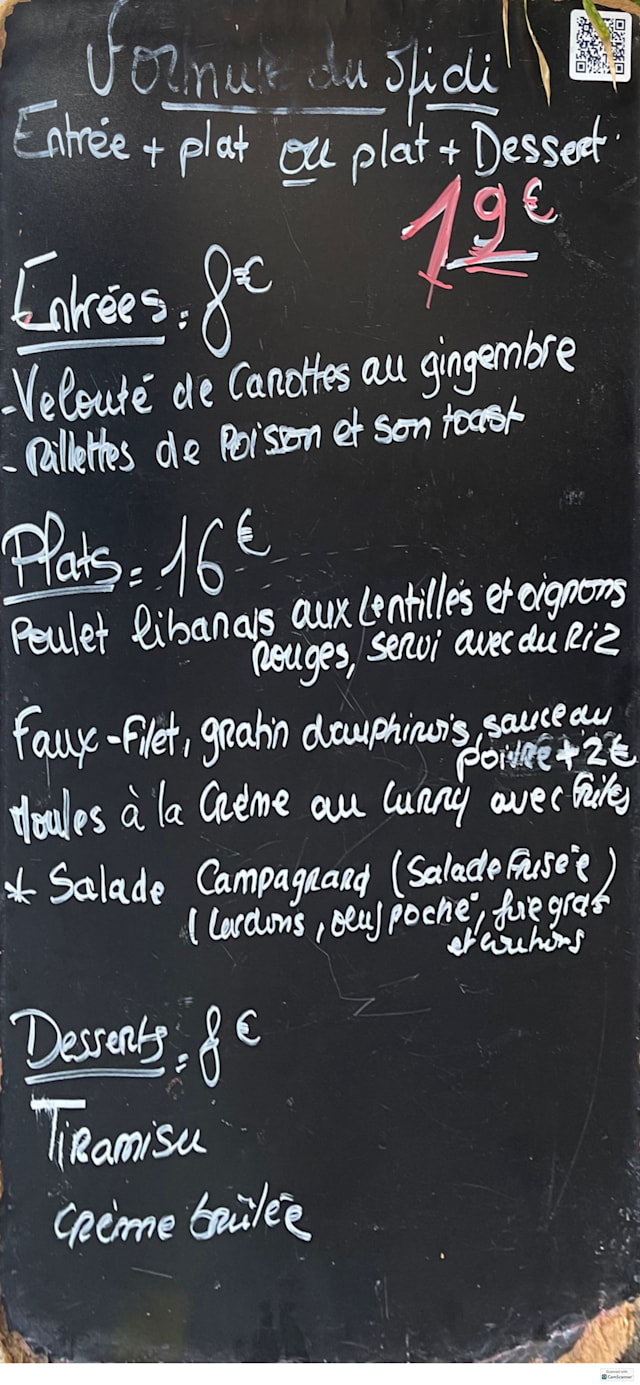 Formule du Midi
Entrée + plat ou plat + Dessert
19€
Entrées = 8€
- Velouté de Carottes au gingembre
- Rillettes de Poisson et son toast
Plats = 16€
Poulet libanais aux Lentilles et oignons
rouges, servi avec du Riz
Faux-Filet, gratin dauphinois, sauce au
poivre + 2€
Moules à la Crème au Curry avec frites
* Salade Campagnard (Salade Frisée)
(Lardons, oeuf poché, foie gras
et croutons
Desserts = 8€
Tiramisu
Crème brûlée
Scanned with
CamScanner